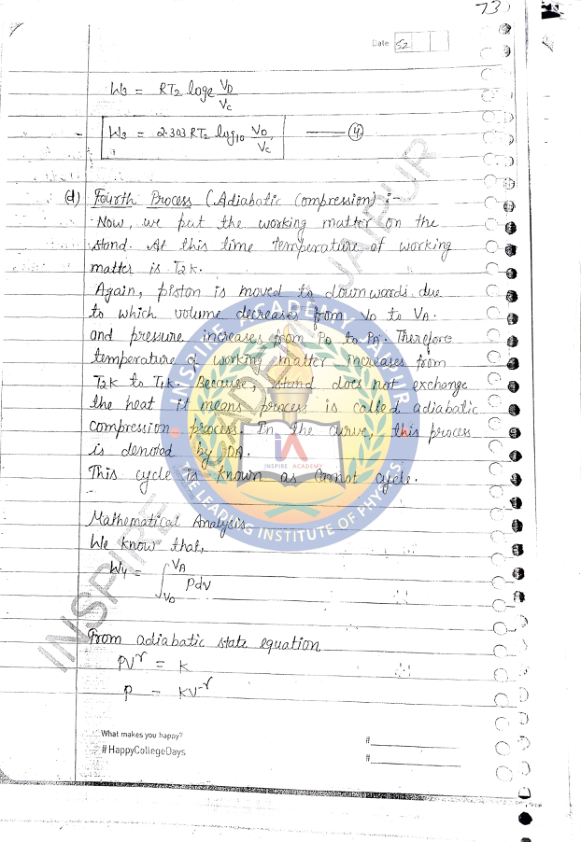 73
Date 52
W3 = RT2 loge VD/VC
W3 = 2.303 RT2 log10 VD/VC —— (4)
(d) Fourth Process (Adiabatic Compression) :-
Now, we put the working matter on the
stand. At this time temperature of working
matter is T2K.
Again, piston is moved to downwards due
to which volume decreases from VD to VA.
and pressure increases from PD to PA. Therefore
temperature of working matter increases from
T2K to T1K. Because, stand does not exchange
the heat it means process is called adiabatic
compression process. In the curve, this process
is denoted by DA.
This cycle is known as Carnot cycle.
Mathematical Analysis
We know that,
W4 = ∫VD^VA PdV
From adiabatic state equation
PV^γ = K
P = KV^-γ
What makes you happy?
#HappyCollegeDays
#
#
INSPIRE ACADEMY JAIPUR
INSPIRE ACADEMY
THE LEADING INSTITUTE OF PHYSICS
iA
INSPIRE ACADEMY